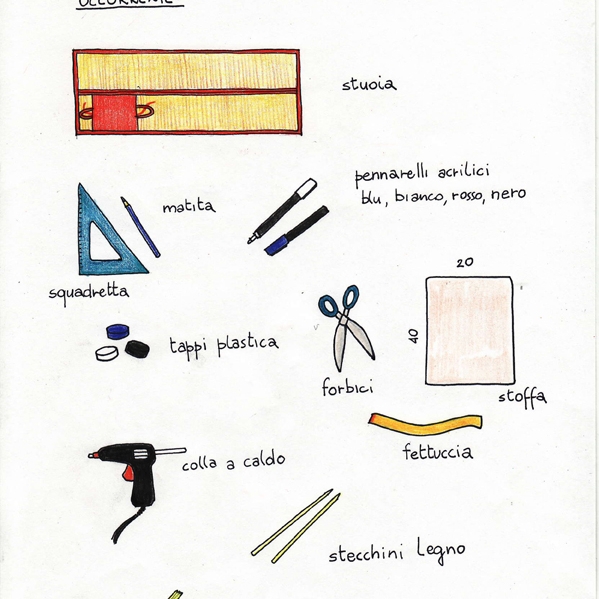 stuoia
pennarelli acrilici
blu, bianco, rosso, nero
matita
squadretta
20
40
tappi plastica
forbici
stoffa
fettuccia
colla a caldo
stecchini legno